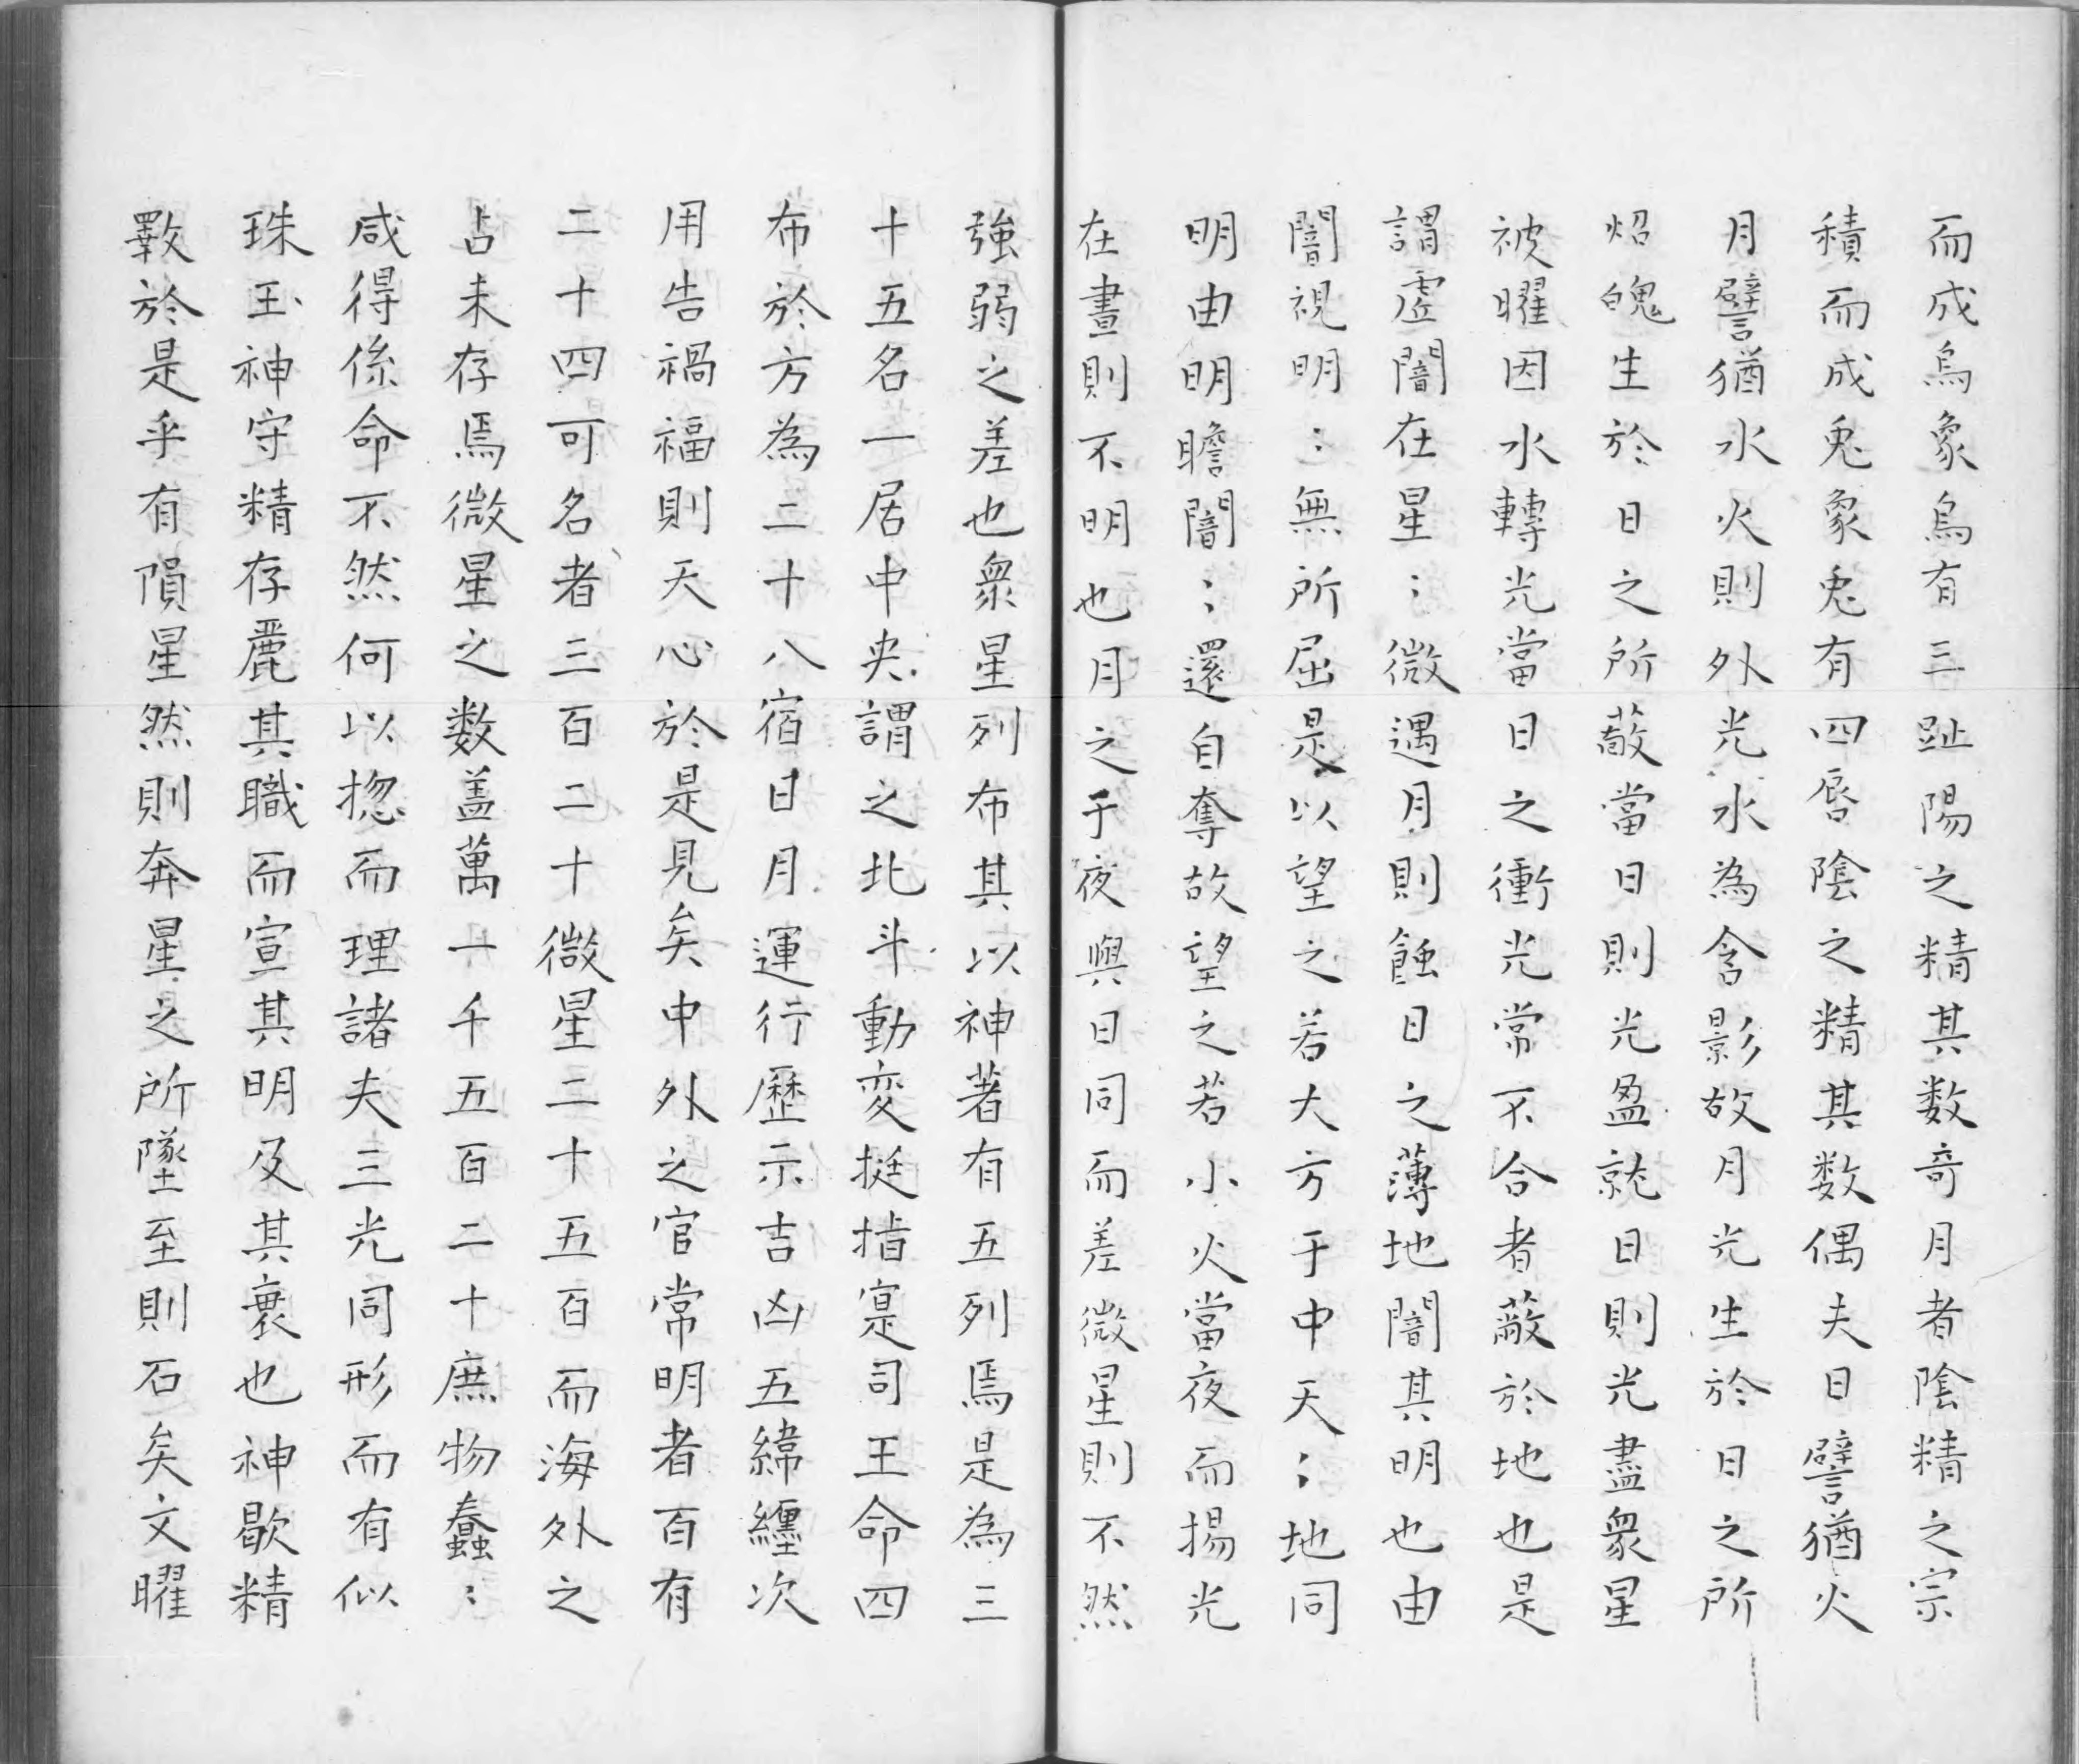 而成烏象烏有三趾陽之精其数奇月者陰精之宗
積而成兎象兎有四唇陰之精其数偶夫日譬猶火
月譬猶水火則外光水為含影故月光生於日之所
炤魄生於日之所蔽當日則光盈就日則光盡衆星
被曜因水轉光當日之衝光常不合者蔽於地也是
謂虛闇在星〻微遇月則蝕日之薄地闇其明也由
闇視明〻無所屈是以望之若大方于中天〻地同
明由明瞻闇〻還自奪故望之若小火當夜而揚光
在晝則不明也月之于夜與日同而差微星則不然
強弱之差也衆星列布其以神著有五列焉是為三
十五名一居中央謂之北斗動変挺指寔司王命四
布於方為二十八宿日月運行歷示吉凶五緯纒次
用告禍福則天心於是見矣中外之官常明者百有
二十四可名者三百二十微星二十五百而海外之
占未存焉微星之数盖萬一千五百二十庶物蠢〻
咸得係命不然何以揔而理諸夫三光同形而有似
珠玉神守精存麗其職而宣其明及其衰也神歇精
斁於是乎有隕星然則奔星之所墜至則石矣文曜